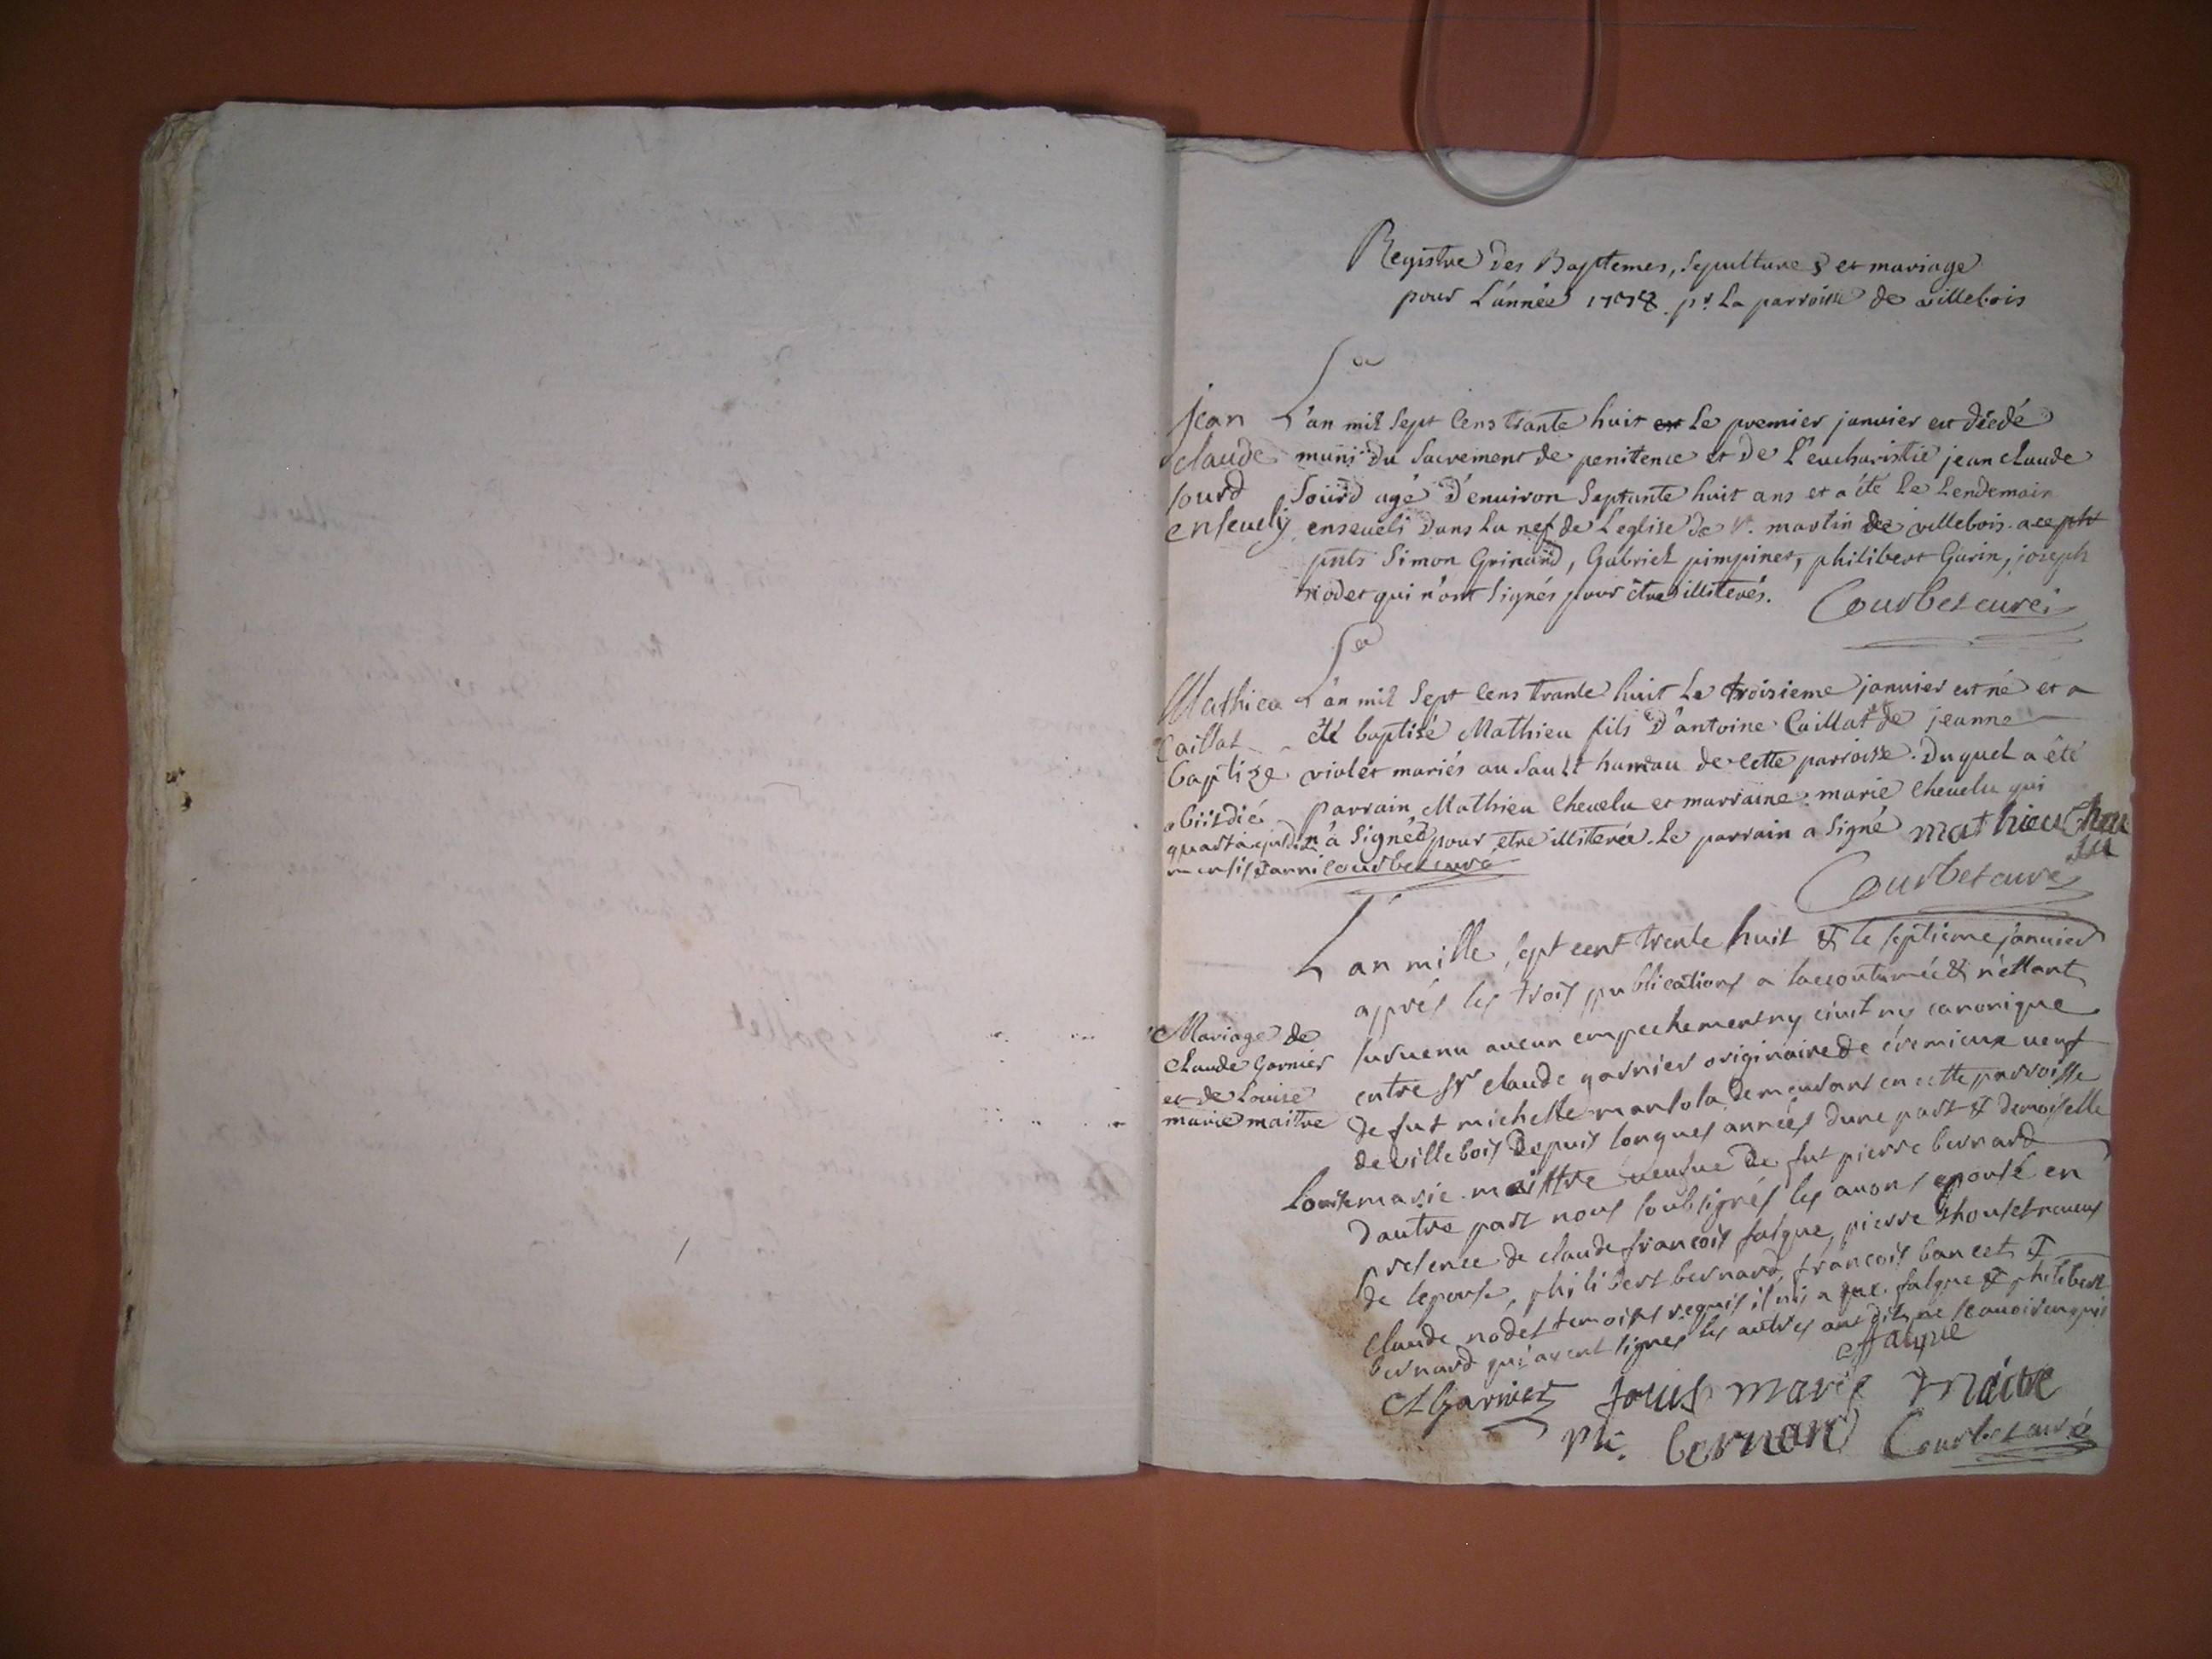 Registre des Baptemes, sepultures et mariage
pour L'année 1738. pr La parroisse de villebois
jean
claude
sourd
ensevely
L'an mil sept cens trante huit et Le premier janvier est décédé
muni du sacrement de penitence et de L'eucharistie jean claude
sourd agé d'environ septante huit ans et a été Le Lendemain
enseveli dans La nef de L'eglise de st. martin de villebois.
pnts Simon Grinand, Gabriel pimpinet, philibert Garin, joseph
nodet qui n'ont signés pour être illiterés. Courbet curé
Mathieu
Caillat
baptize
obiit die
L'an mil sept cens trante huit Le troisieme janvier est né et a
été baptisé Mathieu fils D'antoine Caillat et de jeanne
violet mariés au sault hameau de cette parroisse. Duquel a été
parrain Mathieu chevelu et marraine marie chevelu qui
n'a signée pour etre illiterée. Le parrain a signé mathieu Chevelu
Courbet curé
Courbet curé
Mariage de
Claude Garnier
et de Louise
marie maitre
L'an mille sept cent trente huit & le septieme janvier
aprés les trois publications a laccoutumée & n'ettant
survenu aucun empechement ny civil ny canonique
entre sr claude garnier originaire de cremieux veuf
de fut michelle demeurant en cette parroisse
de villebois depuis longues années dune part & demoiselle
Louise marie maittre veufve de fut pierre bernard
dautre part nous soubsignés les avons epousé en
presence de claude françois falque, pierre neveux
de lepouse, philibert bernard, françois bancet &
claude nodet temoins requis il ni a que falque & philibert
bernard qui ayent signes les autres ont dit ne scavoir enquis
falque
Cl Garnier Louise marie maitre
phi. bernard Courbet curé